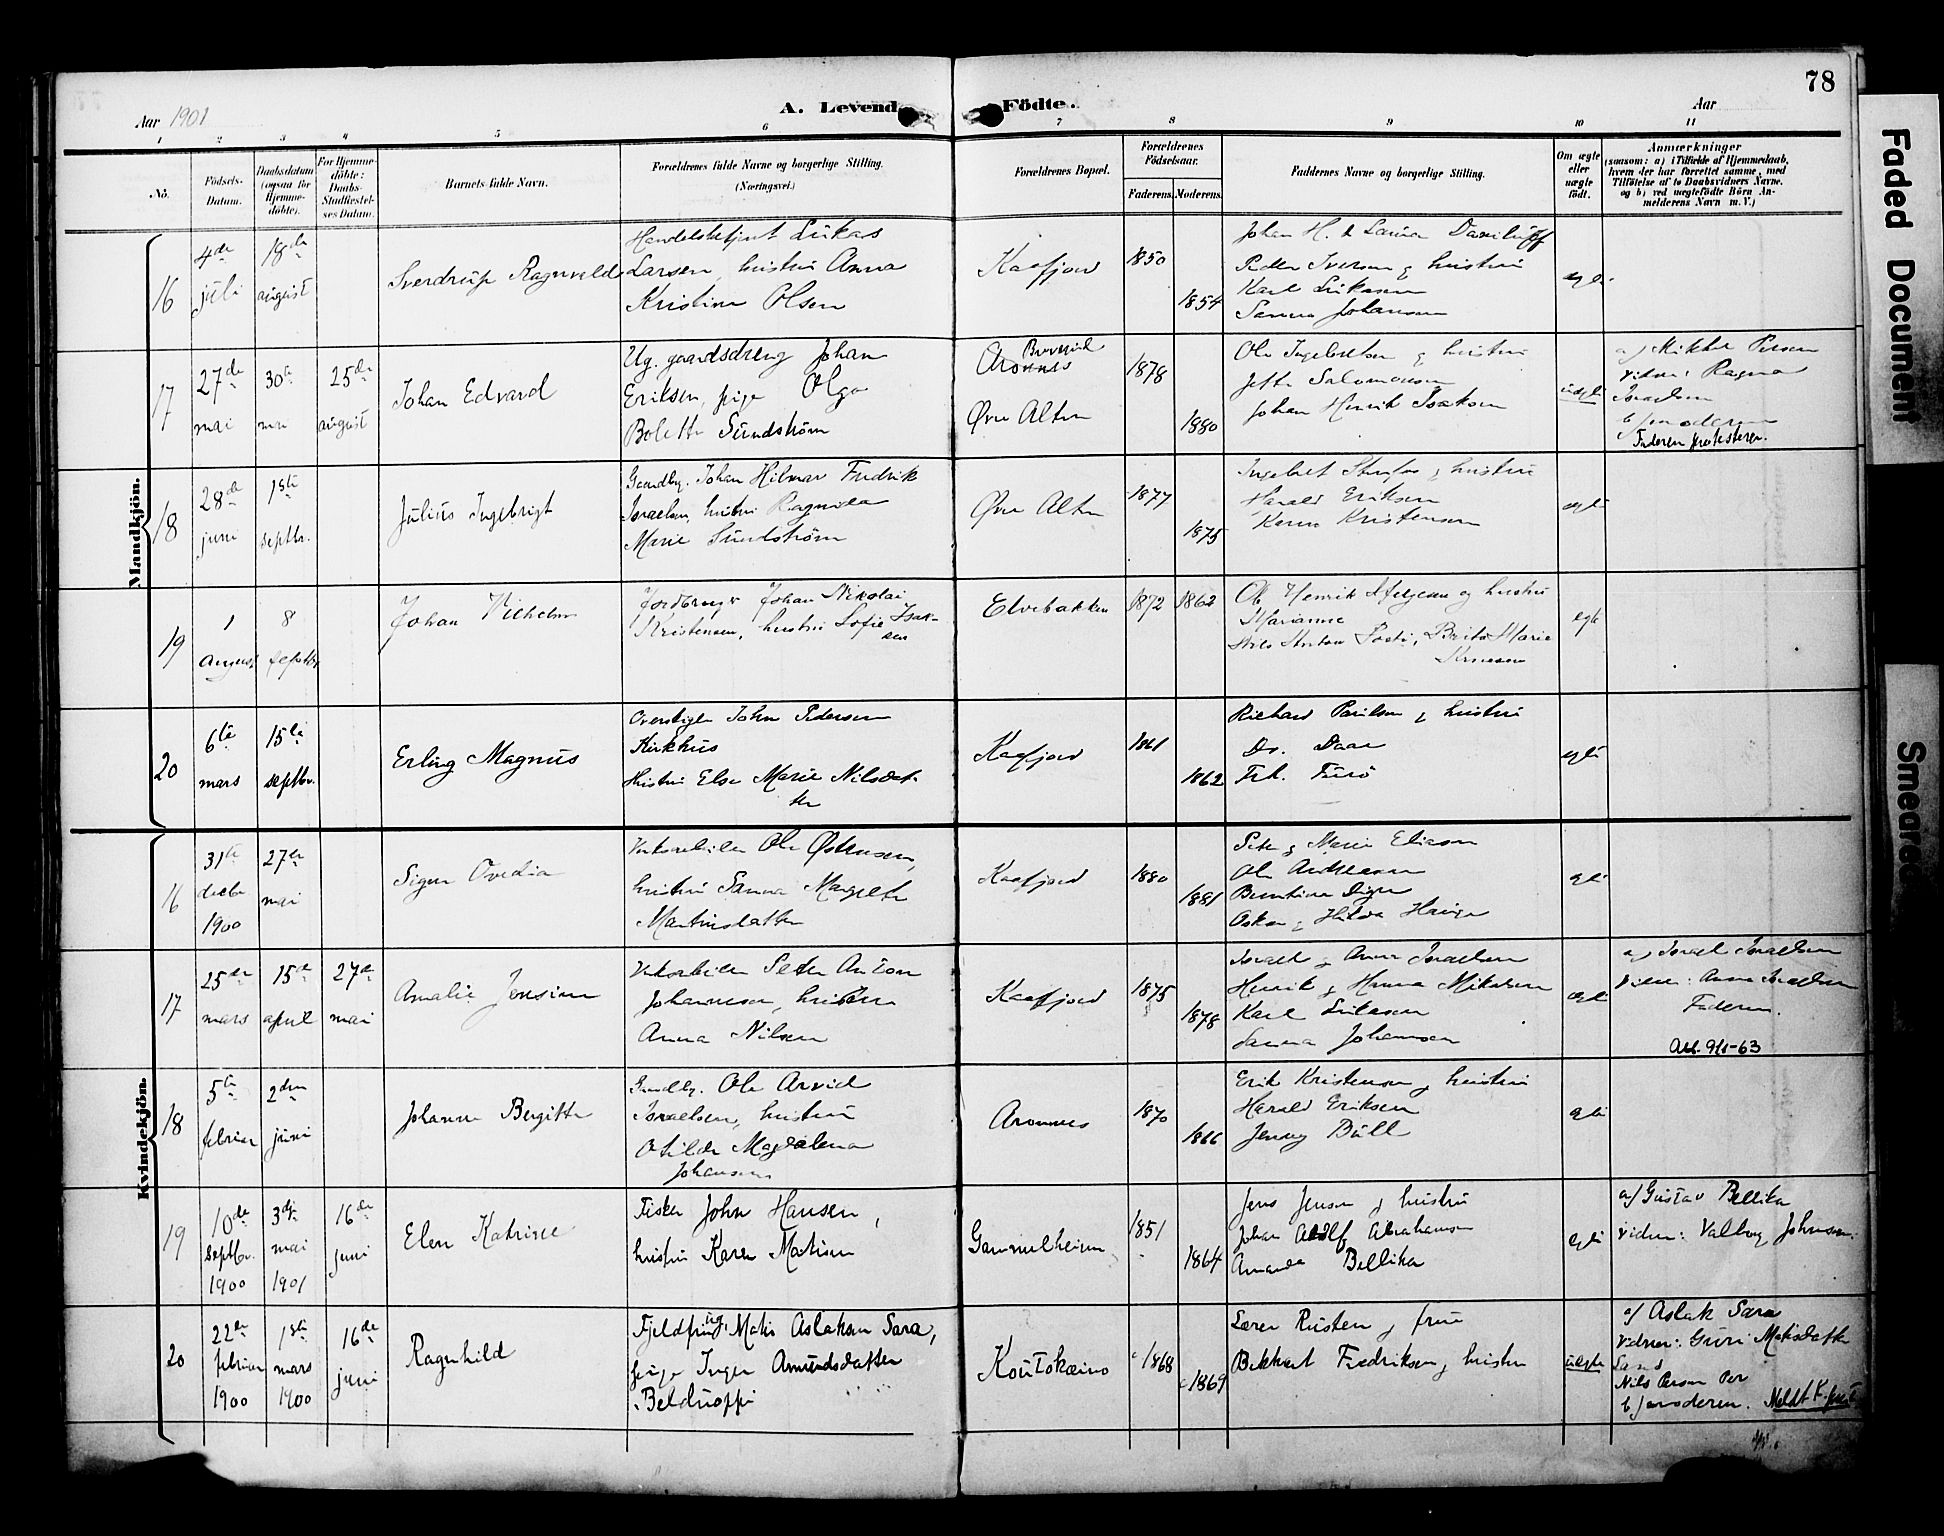 78
Aar 1901
A. Levend Födte.
Aar
1 2 3 4 5 6 7 8 9 10 11
No.
Födsels-
Datum.
Daabsdatum
(ogsaa for
Hjemme-
döbte).
For Hjemme-
döbte:
Daabs-
Stadfæstel-
ses Datum.
Barnets fulde Navn.
Forældrenes fulde Navne og borgerlige Stilling.
(Næringsvei.)
Forældrenes Bopæl.
Forældrenes
Födselsaar.
Faderens.
Moderens.
Faddernes Navne og borgerlige Stilling.
Om ægte
eller
uægte
födt.
Anmærkninger
(saasom: a) i Tilfælde af Hjemmedaab,
hvem der har forrettet samme, med
Tilföielse af to Daabsvidners Navne,
og b) ved uægtefödte Börn An-
melderens Navn m. V.)
Mandkjön.
16
4de
juli
18de
august
Sverdrup Ragnvald
Lukas
Larsen, hustru Anna
Kristine Olsen
Kaafjord
1850
1854
Johan H. & Laura
Peder Iversen & hustru
Karl Eriksen
Sanna Johansen
egte
17
27de
mai
30te
mai
25de
august
Johan Edvard
Ug. gaardsdreng Johan
Eriksen, pige Olga
Bolette Sundström
Aronnes
Øvre Alten
1878
1880
Ole Ingebretsen & hustru
Salomonsen
Johan Henrik Isaksen
uegte
a) Mikkel Persen
vidne: Ragna
Israelsen
b) moderen
Faderen protesterer.
18
28de
juni
1ste
septbr.
Julius Ingebrigt
Gaardbr. Johan Hilmar Fredrik
Israelsen, hustru Ragnilda
Marie Sundström
Øvre Alten
1877
1875
Ingebret & hustru
Harald Eriksen
Karen Kristensen
egte
19
1
august
8
septbr
Johan Vilhelm
Jordbruger Johan Nikolai
Kristensen, hustru Sofie Isak-
sen
Elvebakken
1872
1862
Ole Henrik og hustru
Marianne
Nils Anton Brita Marie
egte
20
6te
mars
15de
septbr.
Erling Magnus
Overstiger John Pedersen
Kirkhus
Hustru Else Marie Nilsdat-
ter
Kaafjord
1861
1862
Richard Paulsen & hustru
Dr. Daae
Frk.
egte
Kvindekjön.
16
31te
decbr
1900
27de
mai
Signe Ovedia
Verksarbeider Ole Østensen,
hustru Sanna Margrete
Martinsdatter
Kaafjord
1880
1881
Peter & Marie Eliasen
Ole Andreasen
Oskar & Hilda
egte
17
25de
mars
15de
april
27de
mai
Amalie Jensine
Verksarbeider Peter Anton
Johannesen, hustru
Anna Nilsen
Kaafjord
1875
1878
Israel & Anna Israelsen
Henrik & Hanna Mikkelsen
Karl Eriksen
Sanna Johannsen
egte
a) Israel Israelsen
vidne: Anna Israelsen
Faderen.
Att. 9/1-63
18
5te
februar
2den
juni
Johanne Bergitte
Gaardbr. Ole Arvid
Israelsen, hustru
Otilde Magdalena
Johansen
Aronnes
1870
1866
Erik Kristensen & hustru
Harald Eriksen
Jenny Bull
egte
19
10de
septbr.
1900
3die
mai
1901
16de
juni
Elen Katrine
Fisker John Hansen,
hustru Karen Matisen
Gammelheimen
1851
1864
Jens Jensen & hustru
Johan Adolf Abrahamsen
Amanda Bellika
egte
a) Gustav Bellika
vidne: Valborg Johnsen
20
22de
februar
1900
1ste
mars
1900
16de
juni
Ragnhild
Fjeldfin ug. Matis Aslaksen Sara,
pige Inger Amundsdatter
Beldnoppi
Koutokæino
1868
1869
Lærer Rusten & frue
Bekhart Fredriksen & hustru
uegte
a) Aslak Sara
vidner: Guri Matisdatter
Sara
Nils Person Per
b) moderen. Meldt K.
Faded Document
Smeared